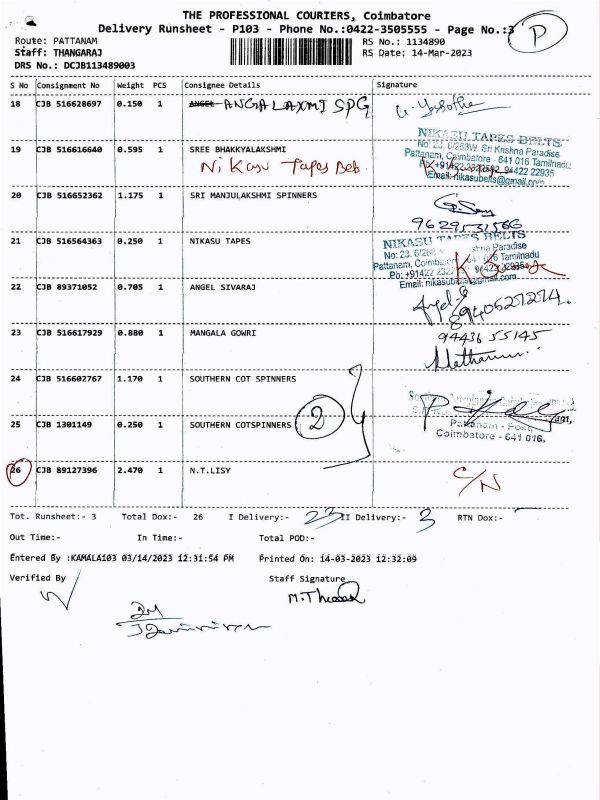 THE PROFESSIONAL COURIERS, Coimbatore
Delivery Runsheet - P103 - Phone No.:0422-3505555 - Page No.:3
P
Route: PATTANAM
RS No.: 1134890
Staff: THANGARAJ
RS Date: 14-Mar-2023
DRS No.: DCJB113489003
S No Consignment No Weight PCS Consignee Details Signature
18 CJB 516628697 0.150 1 ANGEL ANGALAXMI SPG
19 CJB 516616640 0.595 1 SREE BHAKKYALAKSHMI
Nikasu Tapes Beb
NIKASU TAPES BELTS
No: 23, 6/268W, Sri Krishna Paradise
Pattanam, Coimbatore - 641 016 Tamilnadu
94422 22935
Email: nikasubelts@gmail.com
20 CJB 516652362 1.175 1 SRI MANJULAKSHMI SPINNERS
9629531566
21 CJB 516564363 0.250 1 NIKASU TAPES
NIKASU TAPES BELTS
No: 23, 6/268 Paradise
Pattanam, Coimbatore 641 016 Tamilnadu
22 CJB 89371052 0.705 1 ANGEL SIVARAJ
Angel-S
8940627274.
23 CJB 516617929 0.880 1 MANGALA GOWRI
9443655145
24 CJB 516602767 1.170 1 SOUTHERN COT SPINNERS
2
25 CJB 1301149 0.250 1 SOUTHERN COTSPINNERS
Pattanam - Post,
Coimbatore - 641 016.
26 CJB 89127396 2.470 1 N.T.LISY
C/N
Tot. Runsheet:- 3 Total Dox:- 26 I Delivery:- 23 II Delivery:- 3 RTN Dox:-
Out Time:- In Time:- Total POD:-
Entered By :KAMALA103 03/14/2023 12:31:54 PM Printed On: 14-03-2023 12:32:09
Verified By Staff Signature